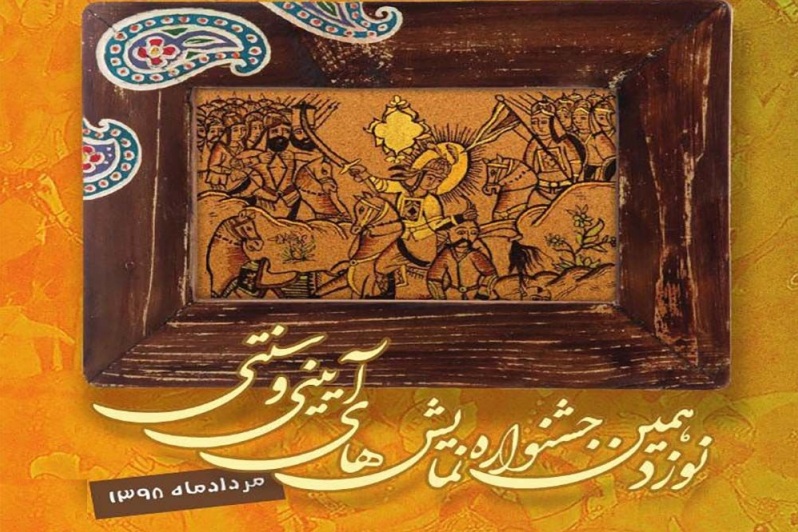 نوزدهمین جشنواره نمایش های آیینی و سنتی
مردادماه ۱۳۹۸